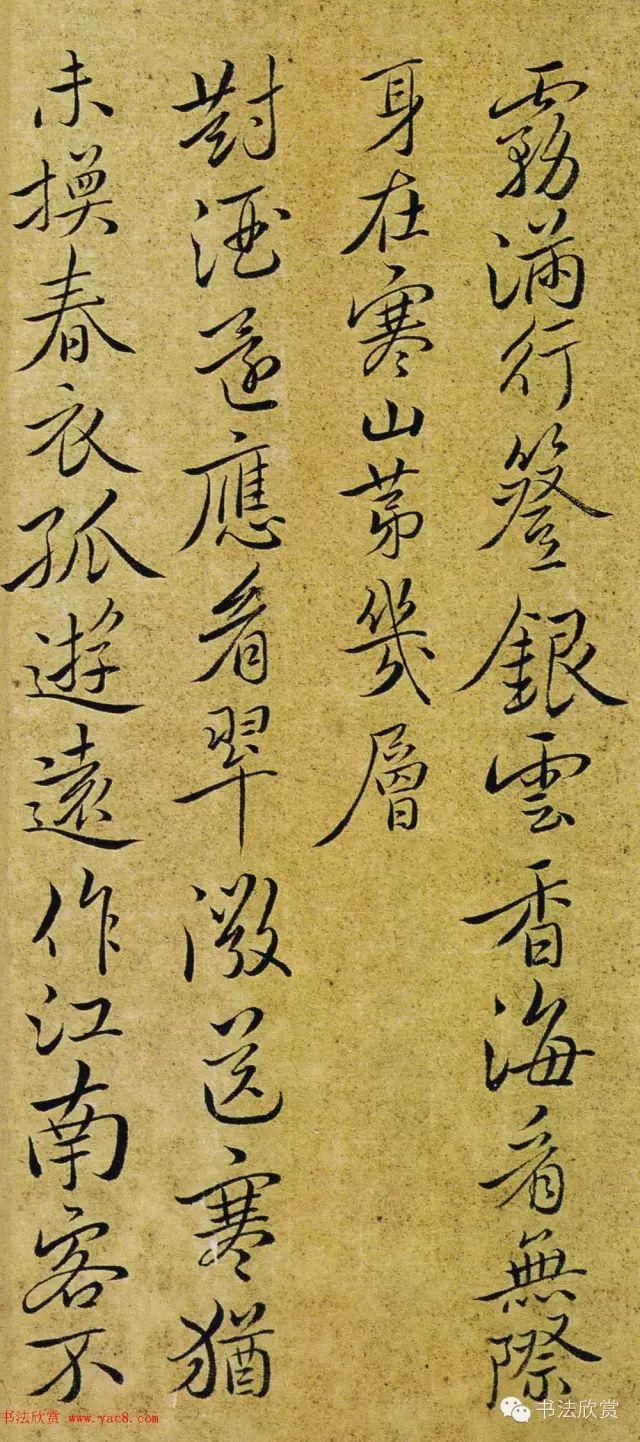 霧滿行簦銀雲香海看無際
身在寒山第幾層
對酒還應看翠微送寒猶
未換春衣孤遊遠作江南客不
书法欣赏 www.yac8.com
书法欣赏